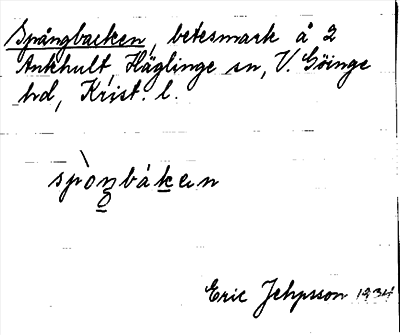 Spångbacken, betesmark å 2
Ankhult, Häglinge sn, V. Göinge
hd, Krist. l.
spòŋbákɐn
Eric Jehpsson 1934